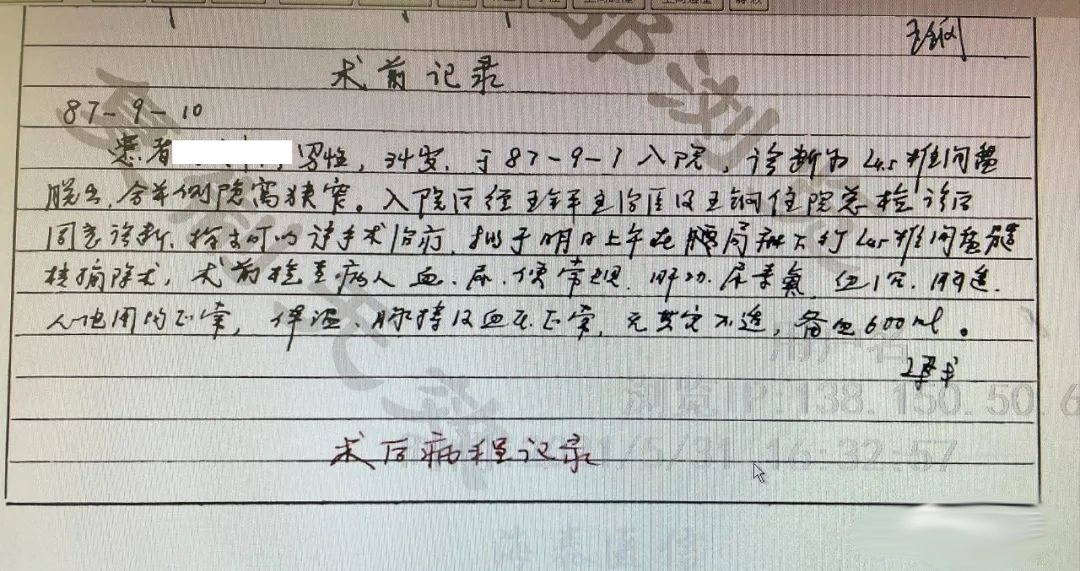 术前记录
87-9-10
患者 男性，34岁，于87-9-1入院，诊断为L4.5椎间盘
脱出，合并侧隐窝狭窄。入院后经王 主治医及王钢住院总检诊后
同意诊断，指示可以请手术治疗，拟于明日上午在腰局麻下行L4.5椎间盘髓
核摘除术，术前检查病人血、尿、便常规、肝功、尿素氮、 透、
心电图均正常，体温、脉搏及血压正常，无其它不适，备血600ml。
术后病程记录
浏览IP:138.150.50.6
/5/31 16:32:57